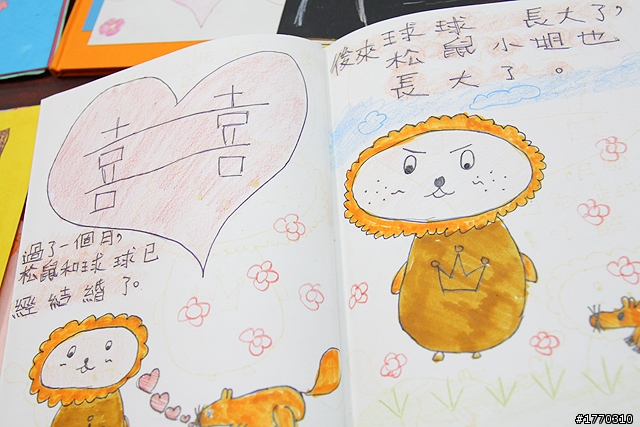 囍
過了一個月,
松鼠和球球已
經結婚了。
後來球球 長大了,
松鼠小姐也
長大了。
#1770310